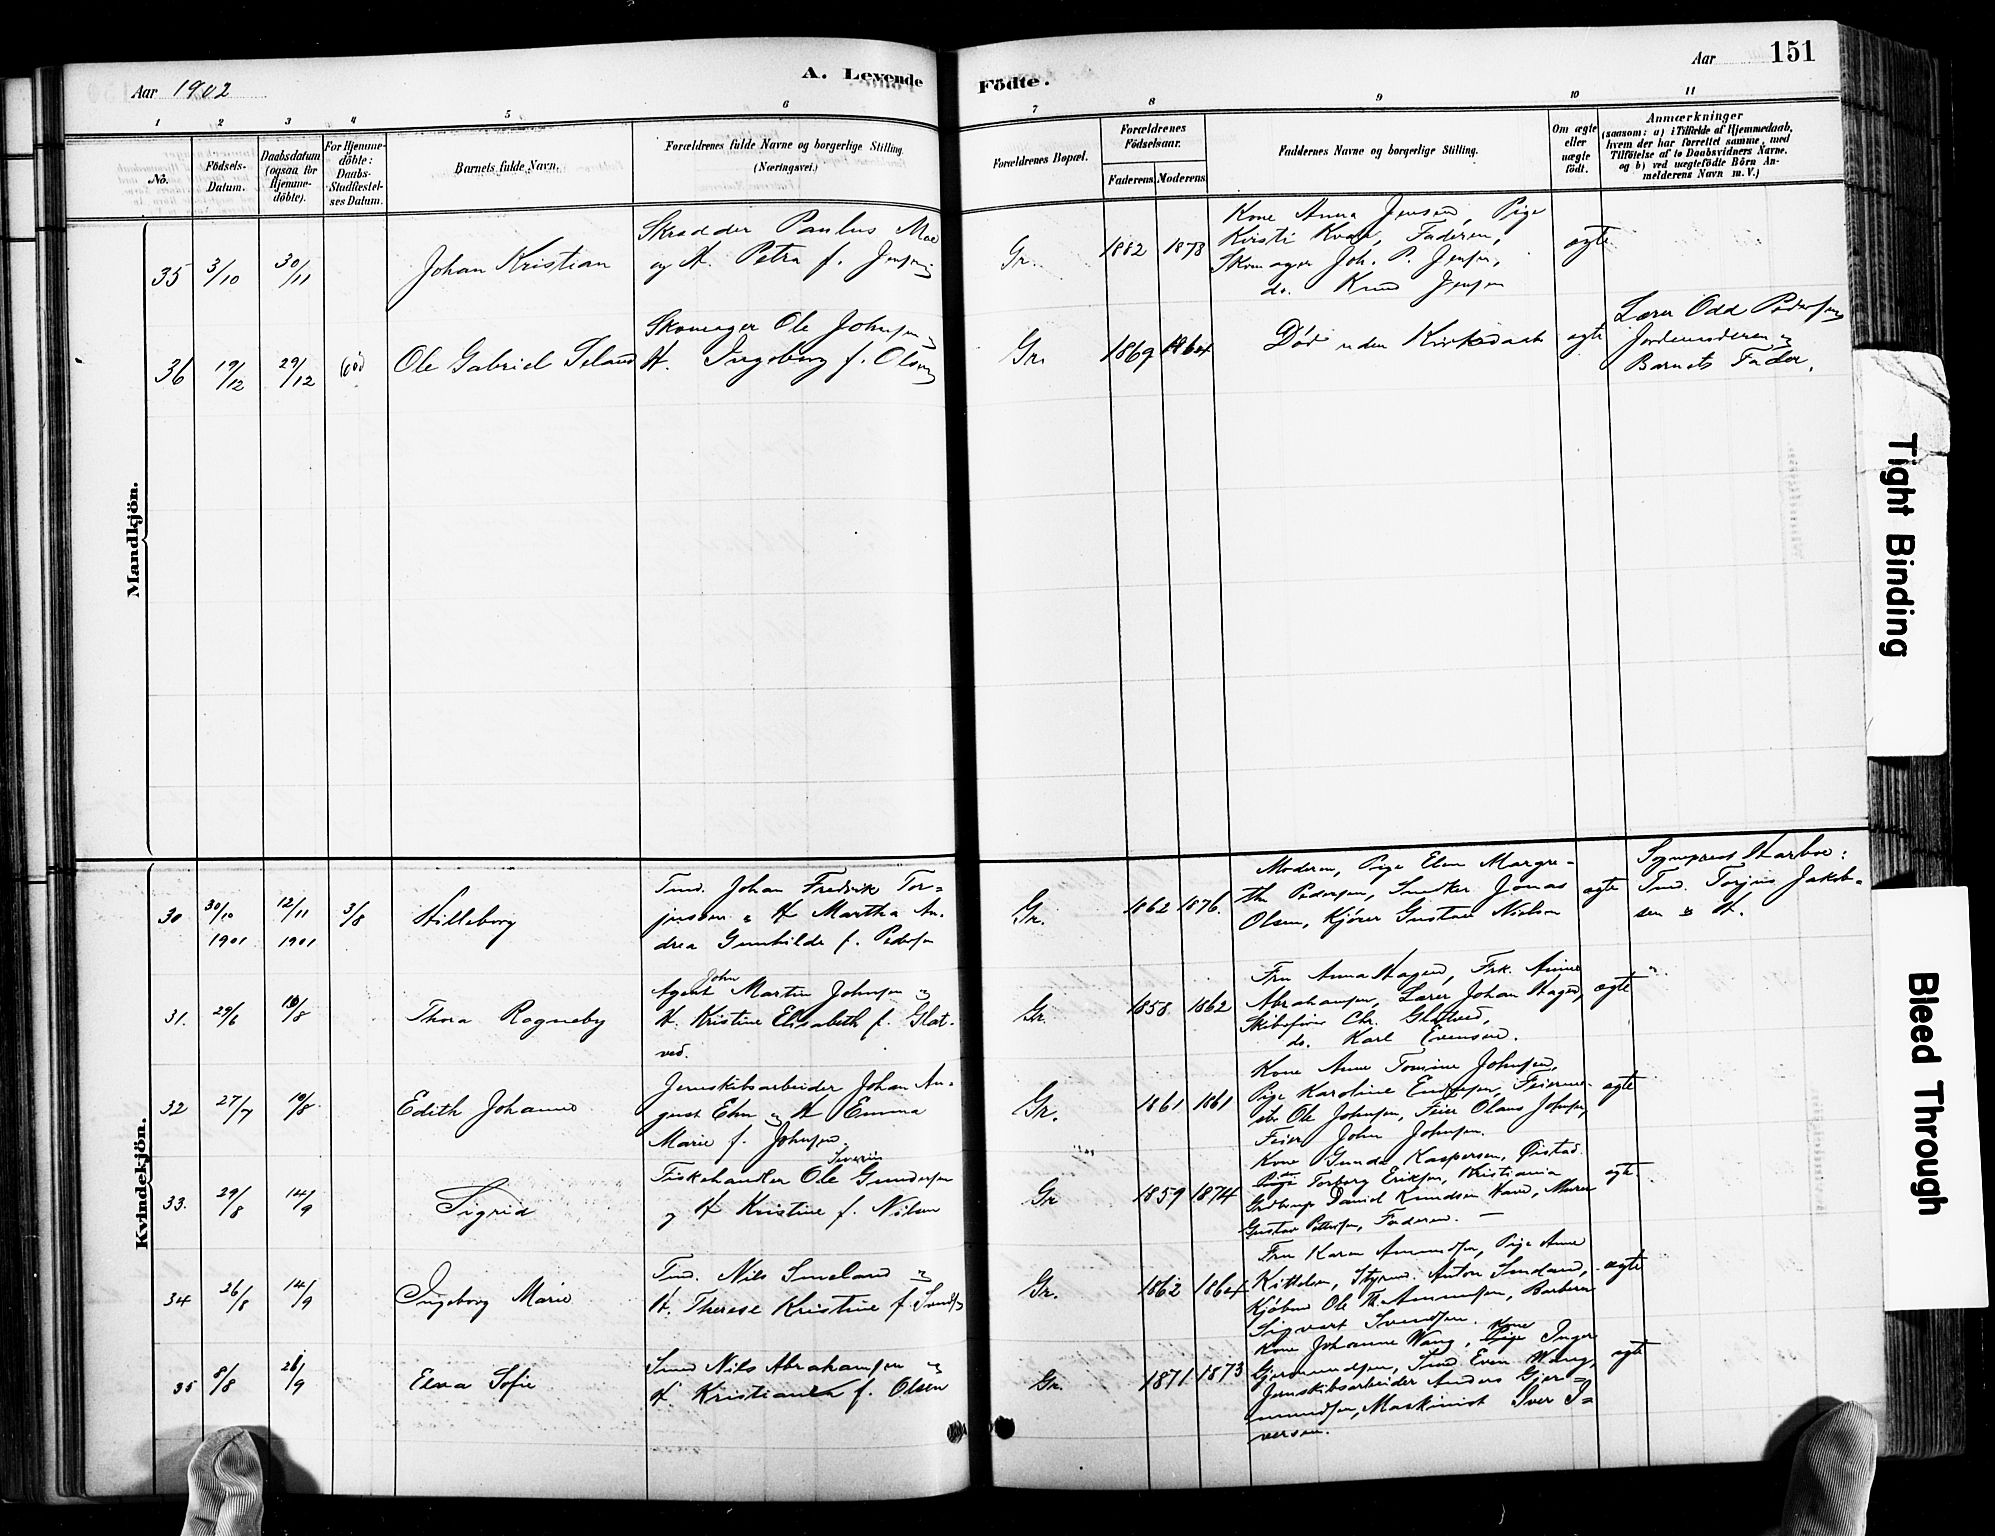 Aar 1902
A. Levende
Födte.
Aar
151
1
2
3
4
5
6
7
8
9
10
11
No.
Födsels-
Datum.
Daabsdatum
(ogsaa for
Hjemme-
döbte).
For Hjemme-
döbte:
Daabs-
Stadfæstel-
ses Datum.
Barnets fulde Navn.
Forældrenes fulde Navne og borgerlige Stilling.
(Næringsvei.)
Forældrenes Bopæl.
Forældrenes
Födselsaar.
Faderens.
Moderens.
Faddernes Navne og borgerlige Stilling.
Om ægte
eller
uægte
födt.
Anmærkninger
(saasom: a) i Tilfælde af Hjemmedaab,
hvem der har forrettet samme, med
Tilföielse af to Daabsvidners Navne.
og b) ved uægtefödte Börn An-
melderens Navn m. V.)
Mandkjön.
35
3/10
30/11
Johan Kristian
Skrædder Paulus Moe
og H. Petra f. Jensen
Gr.
1882
1878
Kone Anna Jensen, Pige
Kirsti Faderen,
Skomager Joh. P. Jensen,
do. Knud Jensen
ægte
36
19/12
29/12
Ole Gabriel
Skomager Ole Johnsen
H. Ingeborg f. Olsen
Gr.
1869
1864
Død uden Kirkedaab
ægte
Lærer Odd Pedersen
Jordemoderen
Barnets Fader.
Kvindekjön.
30
30/10
1901
12/11
1901
3/8
Hilleborg
Tmd. Johan Fredrik Tor=
jussen & H Martha An-
drea Gunhilde f. Pedersen
Gr.
1862
1876.
Moderen, Pige Elen Margre-
the Pedersen, Snedker Jonas
Olsen, Kjører Gustav Nielsen
ægte
Sogneprest Harboe:
Tmd. Torjus Jakob-
sen & H.
31.
29/6
10/8
Thora Ragneby
John
Agent Martin Johnsen
H. Kristine Elisabeth f. Glat-
ved.
Gr.
1858
1862
Fru Anna Hagen, Frk. Anine
Abrahamsen, Lærer Johan Hagen,
Skibsfører Chr. Glatved,
do. Karl Evensen.
ægte
32
27/7
10/8
Edith Johanne
Jernskibsarbeider Johan Au-
gust Ehn H Emma
Marie f. Johnsen
Gr.
1861
1861
Kone Anne Tomine Johnsen,
Pige Karoline Feierme-
ster Ole Johnsen, Feier Olaus Johnsen,
Feier John Johnsen.
ægte
33.
29/8
14/9
Sigrid
Severin
Fiskehandler Ole Gundersen
H Kristine f. Nilsen
Gr
1859
1874
Kone Gunda Kaspersen, Øistad
Torborg Eriksen, Kristiania
Daniel Knudsen Murer
Gustav Pettersen, Faderen.
ægte
34
26/8
14/9
Ingeborg Marie
Tmd. Nils Smeland
H. Therese Kristine f. Svends
Gr.
1862
1864
Fru Karen Amundsen, Pige Anne
Kittelsen, Styrmd. Anton Smeland,
Kjøbmd Ole Th. Amundsen, Barberer
Sigvart Svendsen.
ægte
35
8/8
28/9
Elna Sofie
Smed Nils Abrahamsen
H. Kristianea f. Olsen
Gr.
1871
1873
Kone Johanne Wang, Kone Inger
Gjermundsen, Smd Even Wang,
Jernskibsarbeider Anders Gjer-
mundsen, Maskinist Iver I=
versen.
ægte
Tight Binding
Bleed Through